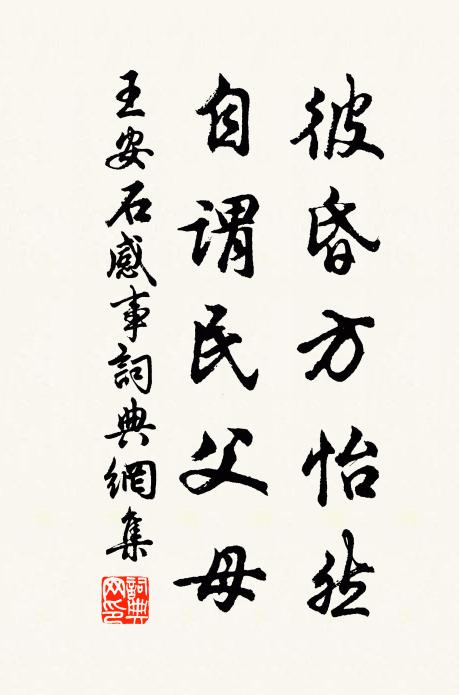 彼昏方怡然
自謂民父母
王安石感事詞典網集
詞典網印